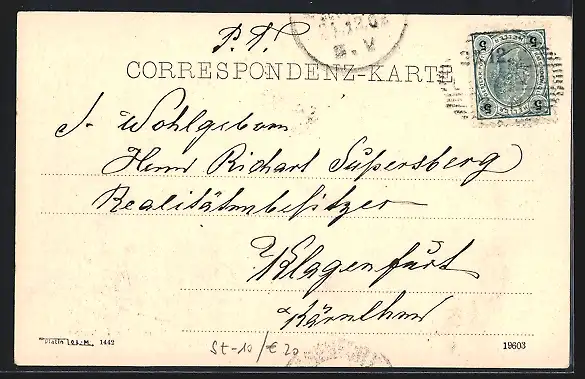 P. T.
CORRESPONDENZ-KARTE
Sr Wohlgeborn
Herrn Richart Supersberg
Realitätenbesitzer
Klagenfurt
Kärnthen
1442
St-10/€ 20
19603
5
5
5
5